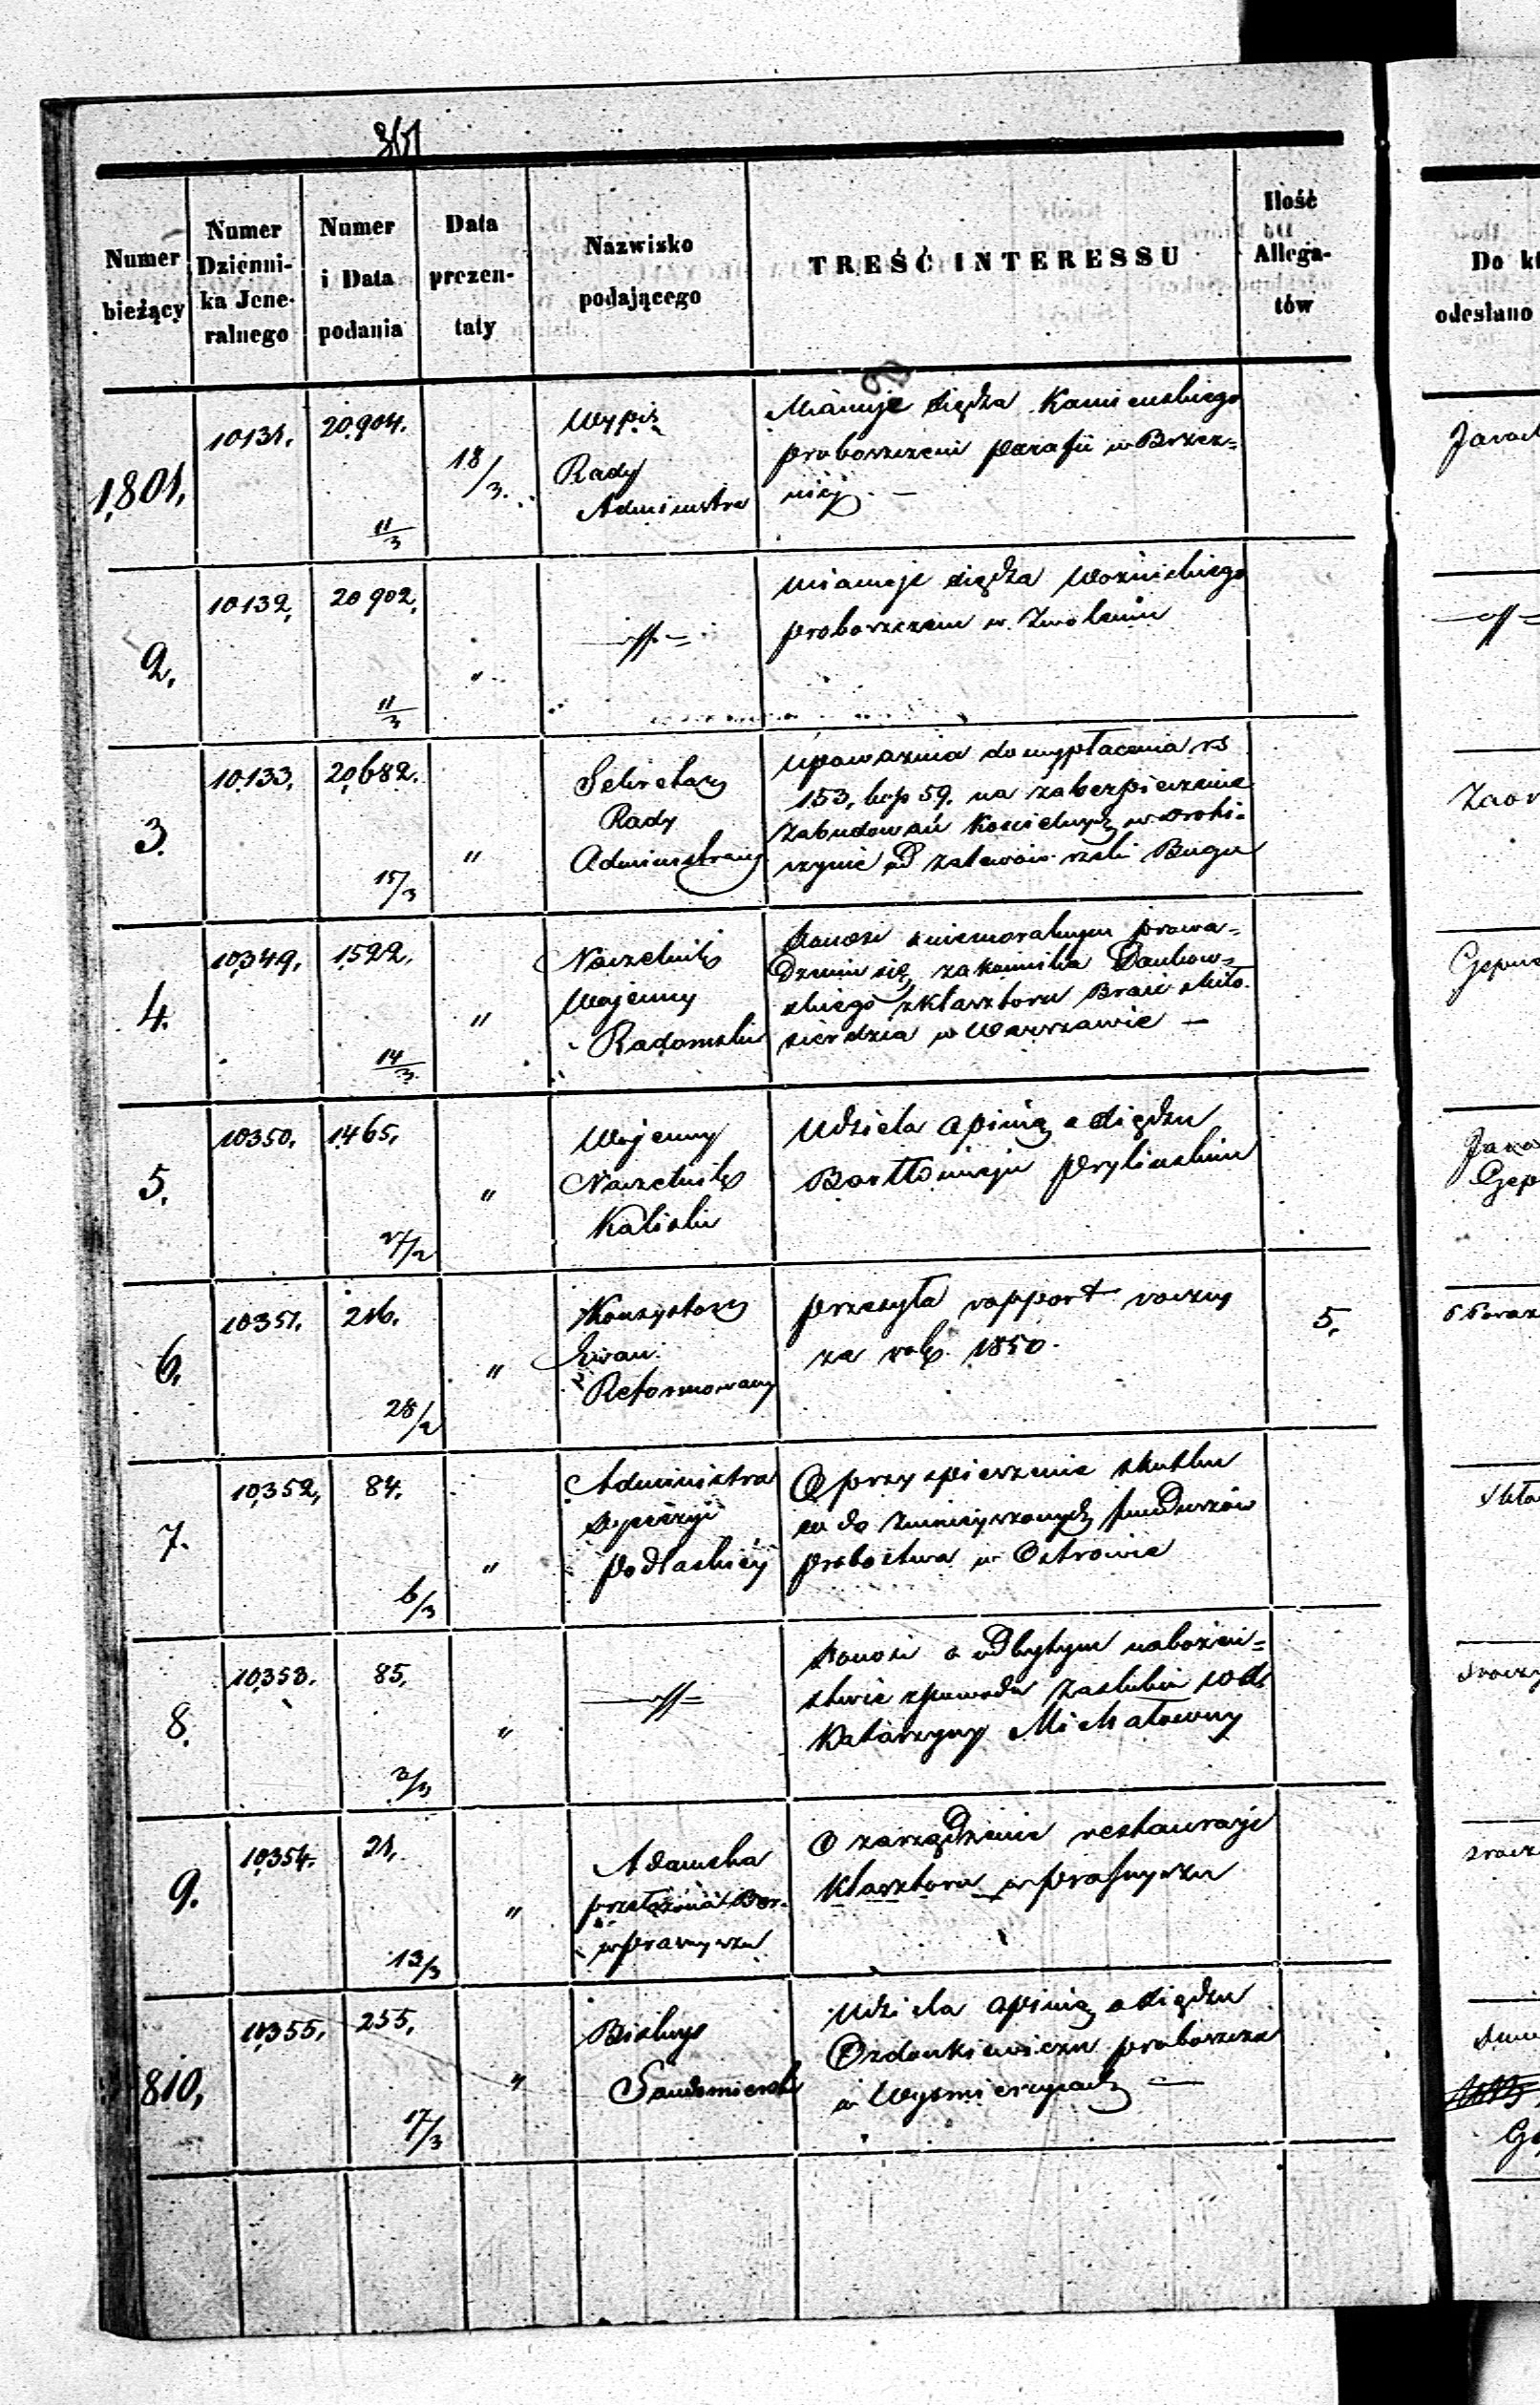 361
Numer bieżący
Numer Dzienni-ka Jene-ralnego
Numer i Data podania
Data prezen-taty
Nazwisko podającego
TREŚĆ INTERESSU
Ilość Allega-tów
Do
odesłano
1,801. 10131. 20904. 11/3 18/3.
Wypis
Rady
Administra
Mianuje Księdza Kamieńskiego
proboszczem parafii w Brzez=
nicy. —
2. 10132, 20902, 11/3 "
—//—
Mianuje Księdza Woźnickiego
proboszczem w Zwoleniu
3. 10,133. 20,682. 15/3 "
Sekretarz
Rady
Administracyj
Upoważnia do wypłacenia rs
153, kop 59. na zabezpieczenie
Zabudowań Kościelnych w Drohi=
czynie od zalewów rzeki Bugu
4. 10,349. 1522. 14/3 "
Naczelnik
Wojenny
Radomski
Donosi o niemoralnym prowa=
dzeniu się zakonnika
skiego z klasztoru Braci Miło
sierdzia w Warszawie —
5. 10350, 1465, 27/2 "
Wojenny
Naczelnik
Kaliski
Udziela opinią o Księdzu
Bartłomieju
6. 10351. 216. 28/2 "
Konsystorz
Ewan.
Reformowany
przesyła rapport roczny
za rok 1850.
5.
7. 10,352, 84. 6/3 "
Administra
Dyecezyi
Podlaskiéj
O przyspieszenie skutku
co do zmniejszonych funduszów
probostwa w Ostrowie
8. 10,353. 85, 3/3 "
—//—
Donosi o odbytym nabożeń=
stwie z powodu Zaślubin
Katarzyny Michałowny
9. 10354. 21, 13/3 "
przełożona Ber.
w Prasnyszu
O zarządzenie restauracji
Klasztoru w Prasnyszu
810, 10355, 255, 17/3 "
Biskup
Sandomierski
Udziela opinią o Księdzu
Ozdonkiewiczu proboszczu
w Wyśmierzycach —